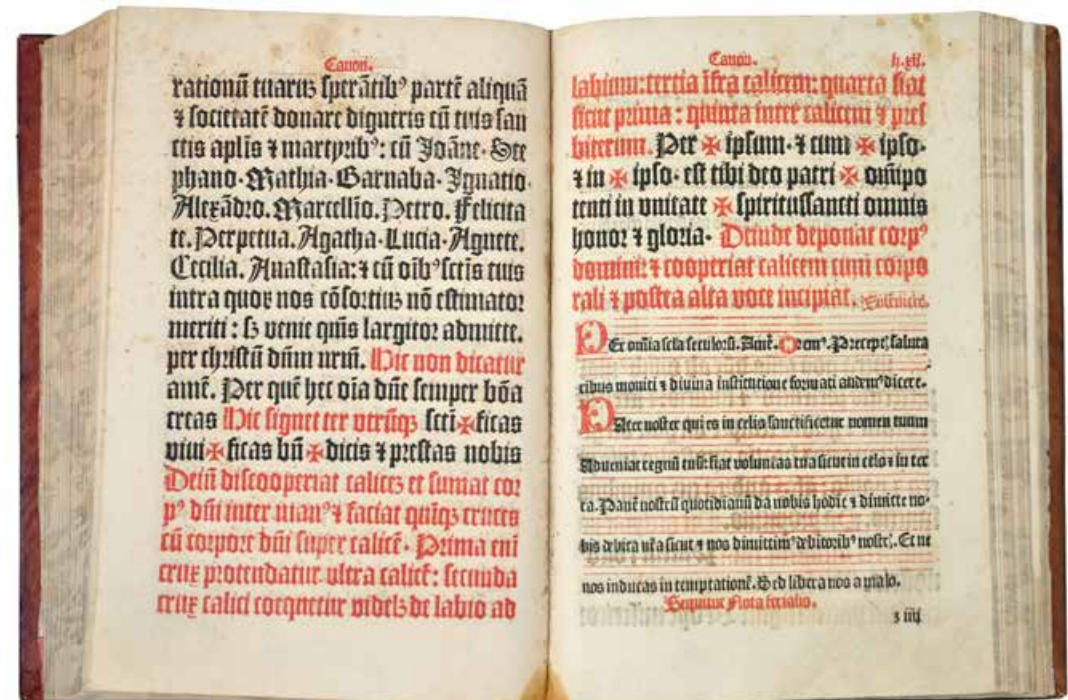 Canon.
rationū tuarū sperātibꝰ partē aliquā
⁊ societatē donare digneris cū tuis san
ctis aplis ⁊ martyribꝰ: cū Joāne. Ste
phano. Mathia. Barnaba. Ignatio.
Alexādro. Marcellīo. Petro. Felicita
te. Perpetua. Agatha. Lucia. Agnete.
Cecilia. Anastasia: ⁊ cū oībꝰ sctis tuis
intra quoꝝ nos cōsortiū nō estimator
meriti: sꝫ venie qūs largitor admitte.
per christū dūm nrm̄. Hic non dicatur
amē. Per quē hec oīa dn̄e semper bōa
creas Hic signet ter vtrūqꝫ sctī✠ficas
viui✠ficas bn̄✠dicis ⁊ prestas nobis
Deiū discooperiat calicē et sumat cor
pꝰ dn̄i inter manꝰ ⁊ faciat quīqꝫ cruces
cū corpore dn̄i super calicē. Prima eni
crux protendatur vltra calicē: secunda
crux calici coequetur videlꝫ de labio ad
Canon.
labium: tertia īfra calicem: quarta fiat
sicut prima: quinta inter calicem ⁊ pres
biterum. Per ✠ ipsum. ⁊ cum ✠ ipso.
⁊ in ✠ ipso. est tibi deo patri ✠ om̄ipo
tenti in vnitate ✠ spiritussancti omnis
honor ⁊ gloria. Deinde deponat corpꝰ
domini: ⁊ cooperiat calicem cum corpo
rali ⁊ postea alta voce incipiat.
PEr om̄ia scła seculorū. Amē. Oremꝰ. Preceptꝭ saluta
ribus moniti ⁊ diuina institutione formati audemꝰ dicere.
PAter noster qui es in celis sanctificetur nomen tuum
Adueniat regnū tuū: fiat voluntas tua sicut in celo ⁊ in ter
ra. Panē nostrū quotidianū da nobis hodie ⁊ dimitte no-
bis debita nr̄a sicut ⁊ nos dimittimꝰ debitoribꝰ nostrꝭ. Et ne
nos inducas in temptationē. Sed libera nos a malo.
Sequitur Nota ferialis.
ꝫ iiij